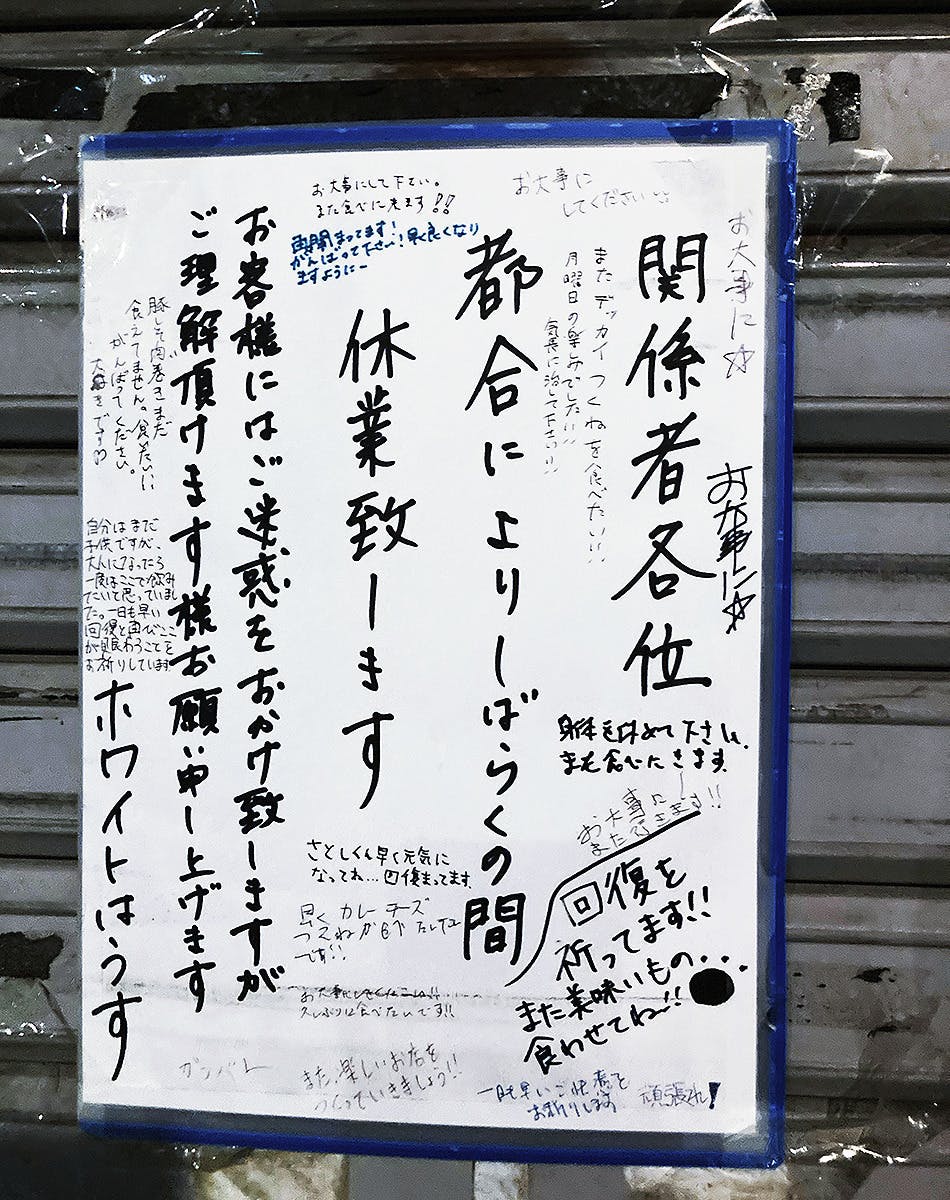 関係者各位
都合によりしばらくの間
休業致します
お客様にはご迷惑をおかけ致しますが
ご理解頂けます様お願い申し上げます
ホワイトはうす
お大事にして下さい。
また食べに来ます!!
お大事に
してください
お大事に☆
お大事に☆
再開まってます!
がんばって下さい!早く良くなり
ますようにー
またデッカイつくねを食べたい!!
月曜日の楽しみでしたい!!
気長に治して下さい!!
豚しそ肉巻きまだ
食えてません。食べたい!!
がんばってください。
大好きです
自分はまだ
子供ですが、
大人になったら
一度はここで飲み
たいと思っていまし
た。一日も早い
回復と再びここ
が賑わうことを
お祈りしています
身体を休めて下さい。
また食べにきます。
お大事に
またきます!!
回復を
祈ってます!!
また美味いもの...
食わせてね〜!!
さとしくん早く元気に
なってね...回復まってます。
早くカレーチーズ
つくねが食べたい
です!!
久しぶりに食べたいです!!
ガンバレ
また楽しいお店を
つくっていきましょう!!
一日も早いご快復を
お祈りします
頑張れ!